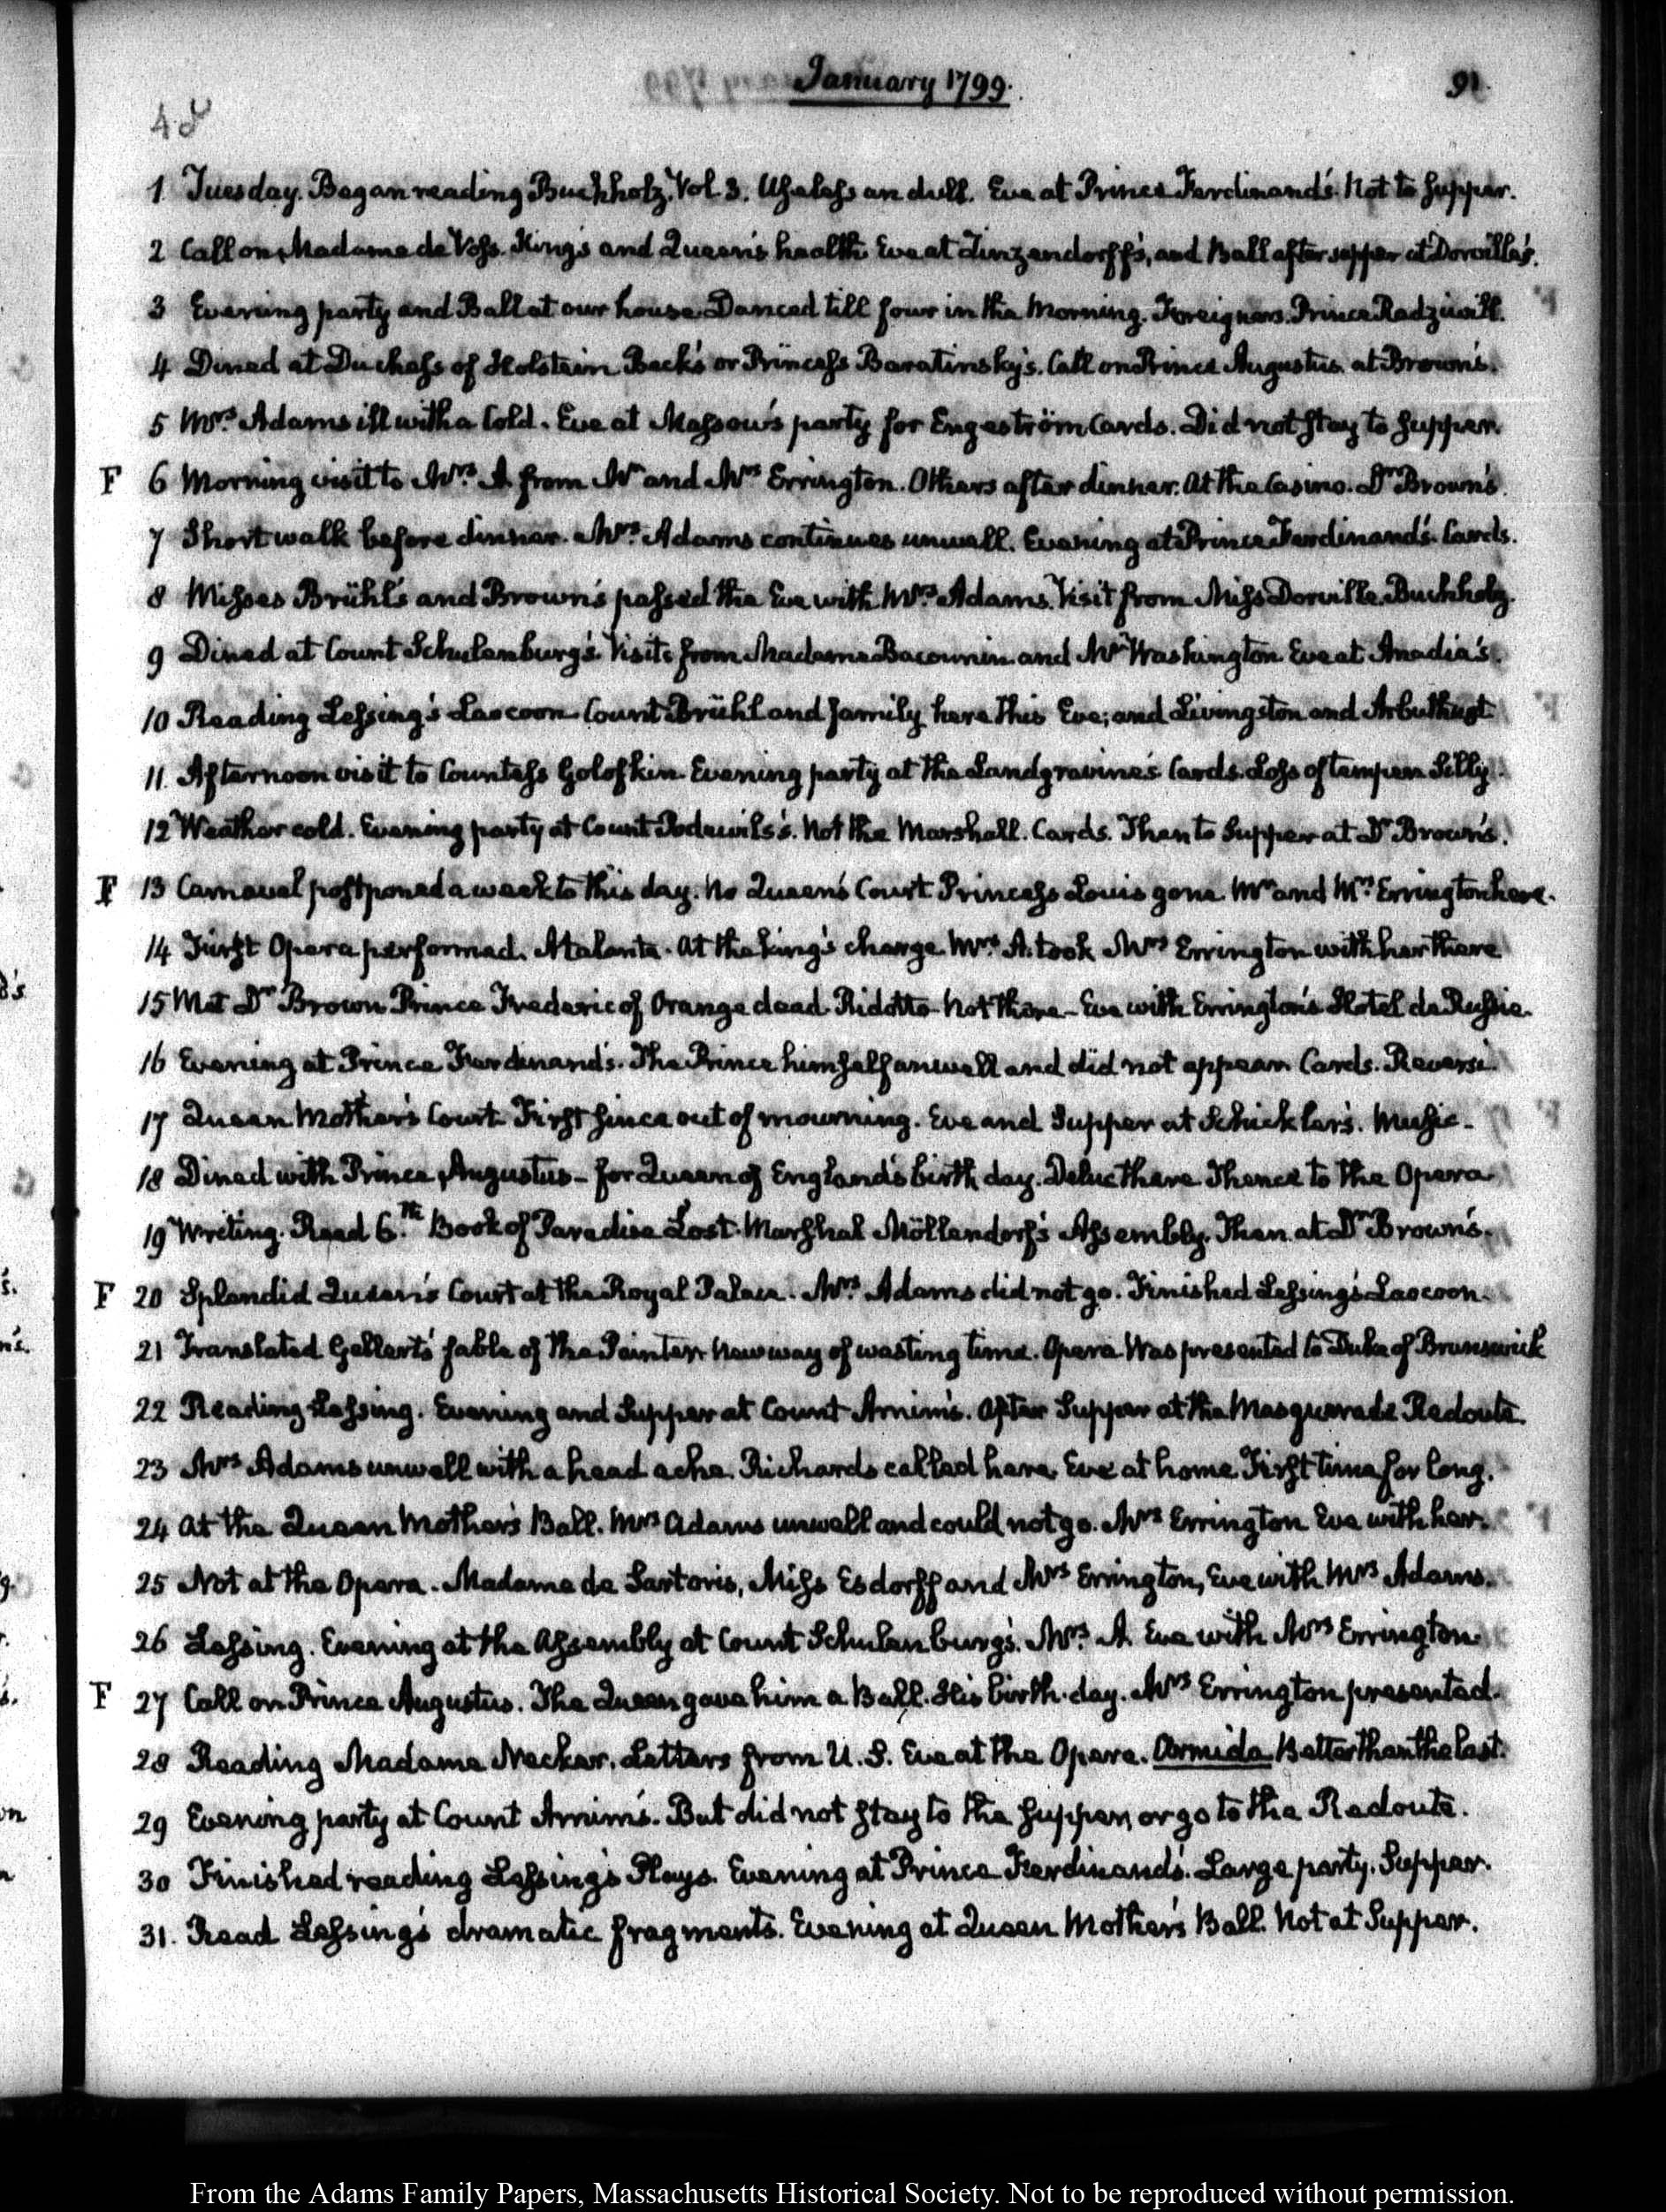 January 1799.
91.
48
1 Tuesday. Began reading Buchholz. Vol. 3. Useless an dull. Eve at Prince Ferdinand's. Not to Supper.
2 Call on Madame de Voss. King's and Queen's health. Eve at Zinzendorff's, and Ball after supper at Dorville's.
3 Evening party and Ball at our house. Danced till four in the Morning. Foreigners. Prince Radziwill.
4 Dined at Duchess of Holstein Beck's or Princess Baratinsky's. Call on Prince Augustus. at Brown's.
5 Mrs. Adams ill with a Cold. Eve at Massow's party for Engeström Cards. Did not stay to Supper.
F 6 Morning visit to Mrs. A. from Mr and Mrs Errington. Others after dinner. At the Casino. Dr. Brown's.
7 Short walk before dinner. Mrs. Adams continues unwell. Evening at Prince Ferdinand's. Cards.
8 Misses Brühl's and Brown's passed the Eve with Mrs. Adams. Visit from Miss Dorville. Buchholz.
9 Dined at Count Schulenburg's. Visits from Madame Bacounin and Mr Washington. Eve at Anadia's.
10 Reading Lessing's Laocoon. Count Brühl and family here this Eve; and Livingston and Arbuthnot.
11. Afternoon visit to Countess Golofkin. Evening party at the Landgravine's. Cards. Loss of temper. Silly.
12 Weather cold. Evening party at Count Podewils's. Not the Marshall. Cards. Then to Supper at Dr Brown's.
F 13 Carnaval postponed a week to this day. No Queen's Court. Princess Louis gone. Mr and Mrs. Errington here.
14 First Opera performed. Atalanta. At the King's charge. Mrs. A. took Mrs Errington with her there
15 Met Dr Brown. Prince Frederic of Orange dead. Ridotto - Not there - Eve with Errington's Hotel de Russie.
16 Evening at Prince Ferdinand's. The Prince himself unwell and did not appear. Cards. Reversi.
17 Queen Mother's Court. First since out of mourning. Eve and Supper at Schickler's. Music -
18 Dined with Prince Augustus - for Queen of England's birth day. Deluc there. Thence to the Opera
19 Writing. Read 6.th Book of Paradise Lost. Marshal Möllendorf's Assembly. Then at Dr Brown's.
F 20 Splendid Queen's Court at the Royal Palace. Mrs. Adams did not go. Finished Lessing's Laocoon.
21 Translated Gellert's fable of the Painter. New way of wasting time. Opera. Was presented to Duke of Brunswick
22 Reading Lessing. Evening and Supper at Count Arnim's. After Supper at the Masquerade Redoute.
23 Mrs Adams unwell with a head ache. Richards called here. Eve at home. First time for long.
24 At the Queen Mother's Ball. Mrs Adams unwell and could not go. Mrs Errington Eve with her.
25 Not at the Opera. Madame de Sartoris, Miss Esdorff and Mrs Errington, Eve with Mrs Adams.
26 Lessing. Evening at the Assembly at Count Schulenburg's. Mrs. A. Eve with Mrs Errington.
F 27 Call on Prince Augustus. The Queen gave him a Ball. His birth-day. Mrs Errington presented.
28 Reading Madame Necker. Letters from U.S. Eve at the Opera. Armida Better than the last.
29 Evening party at Count Arnim's. But did not stay to the Supper, or go to the Redoute.
30 Finished reading Lessing's Plays. Evening at Prince Ferdinand's. Large party. Supper.
31. Read Lessing's dramatic fragments. Evening at Queen Mother's Ball. Not at Supper.
From the Adams Family Papers, Massachusetts Historical Society. Not to be reproduced without permission.